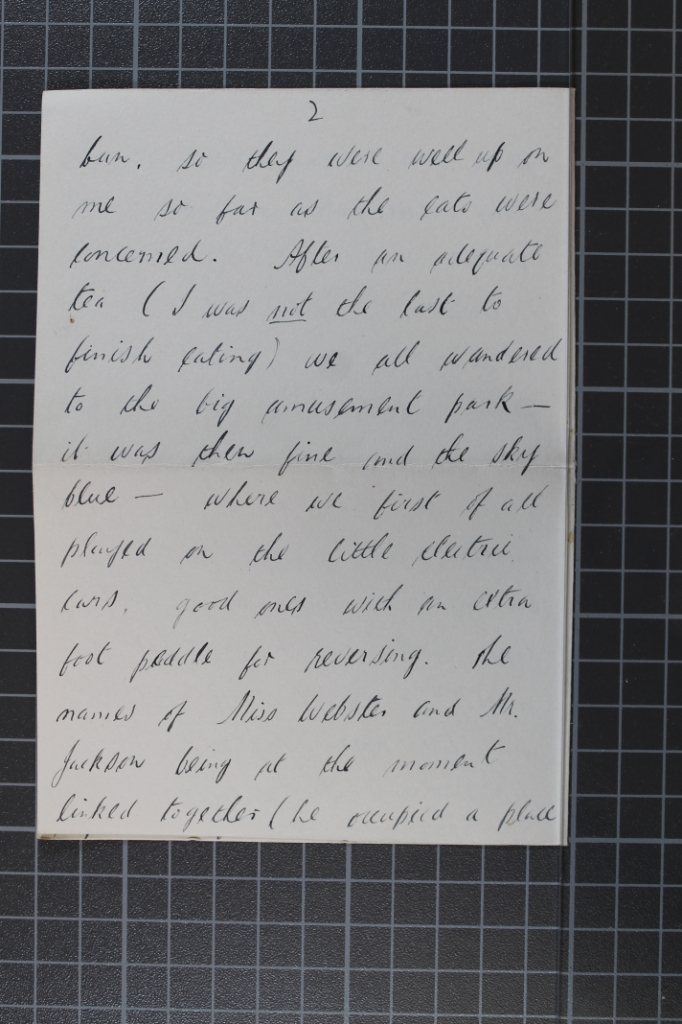 2
bun, so they were well up on
me so far as the eats were
concerned. After an adequate
tea (I was not the last to
finish eating) we all wandered
to the big amusement park —
it was then fine and the sky
blue — where we first of all
played on the little electric
cars, good ones with an extra
foot peddle for reversing. The
names of Miss Webster and Mr.
Jackson being at the moment
linked together (he occupied a place